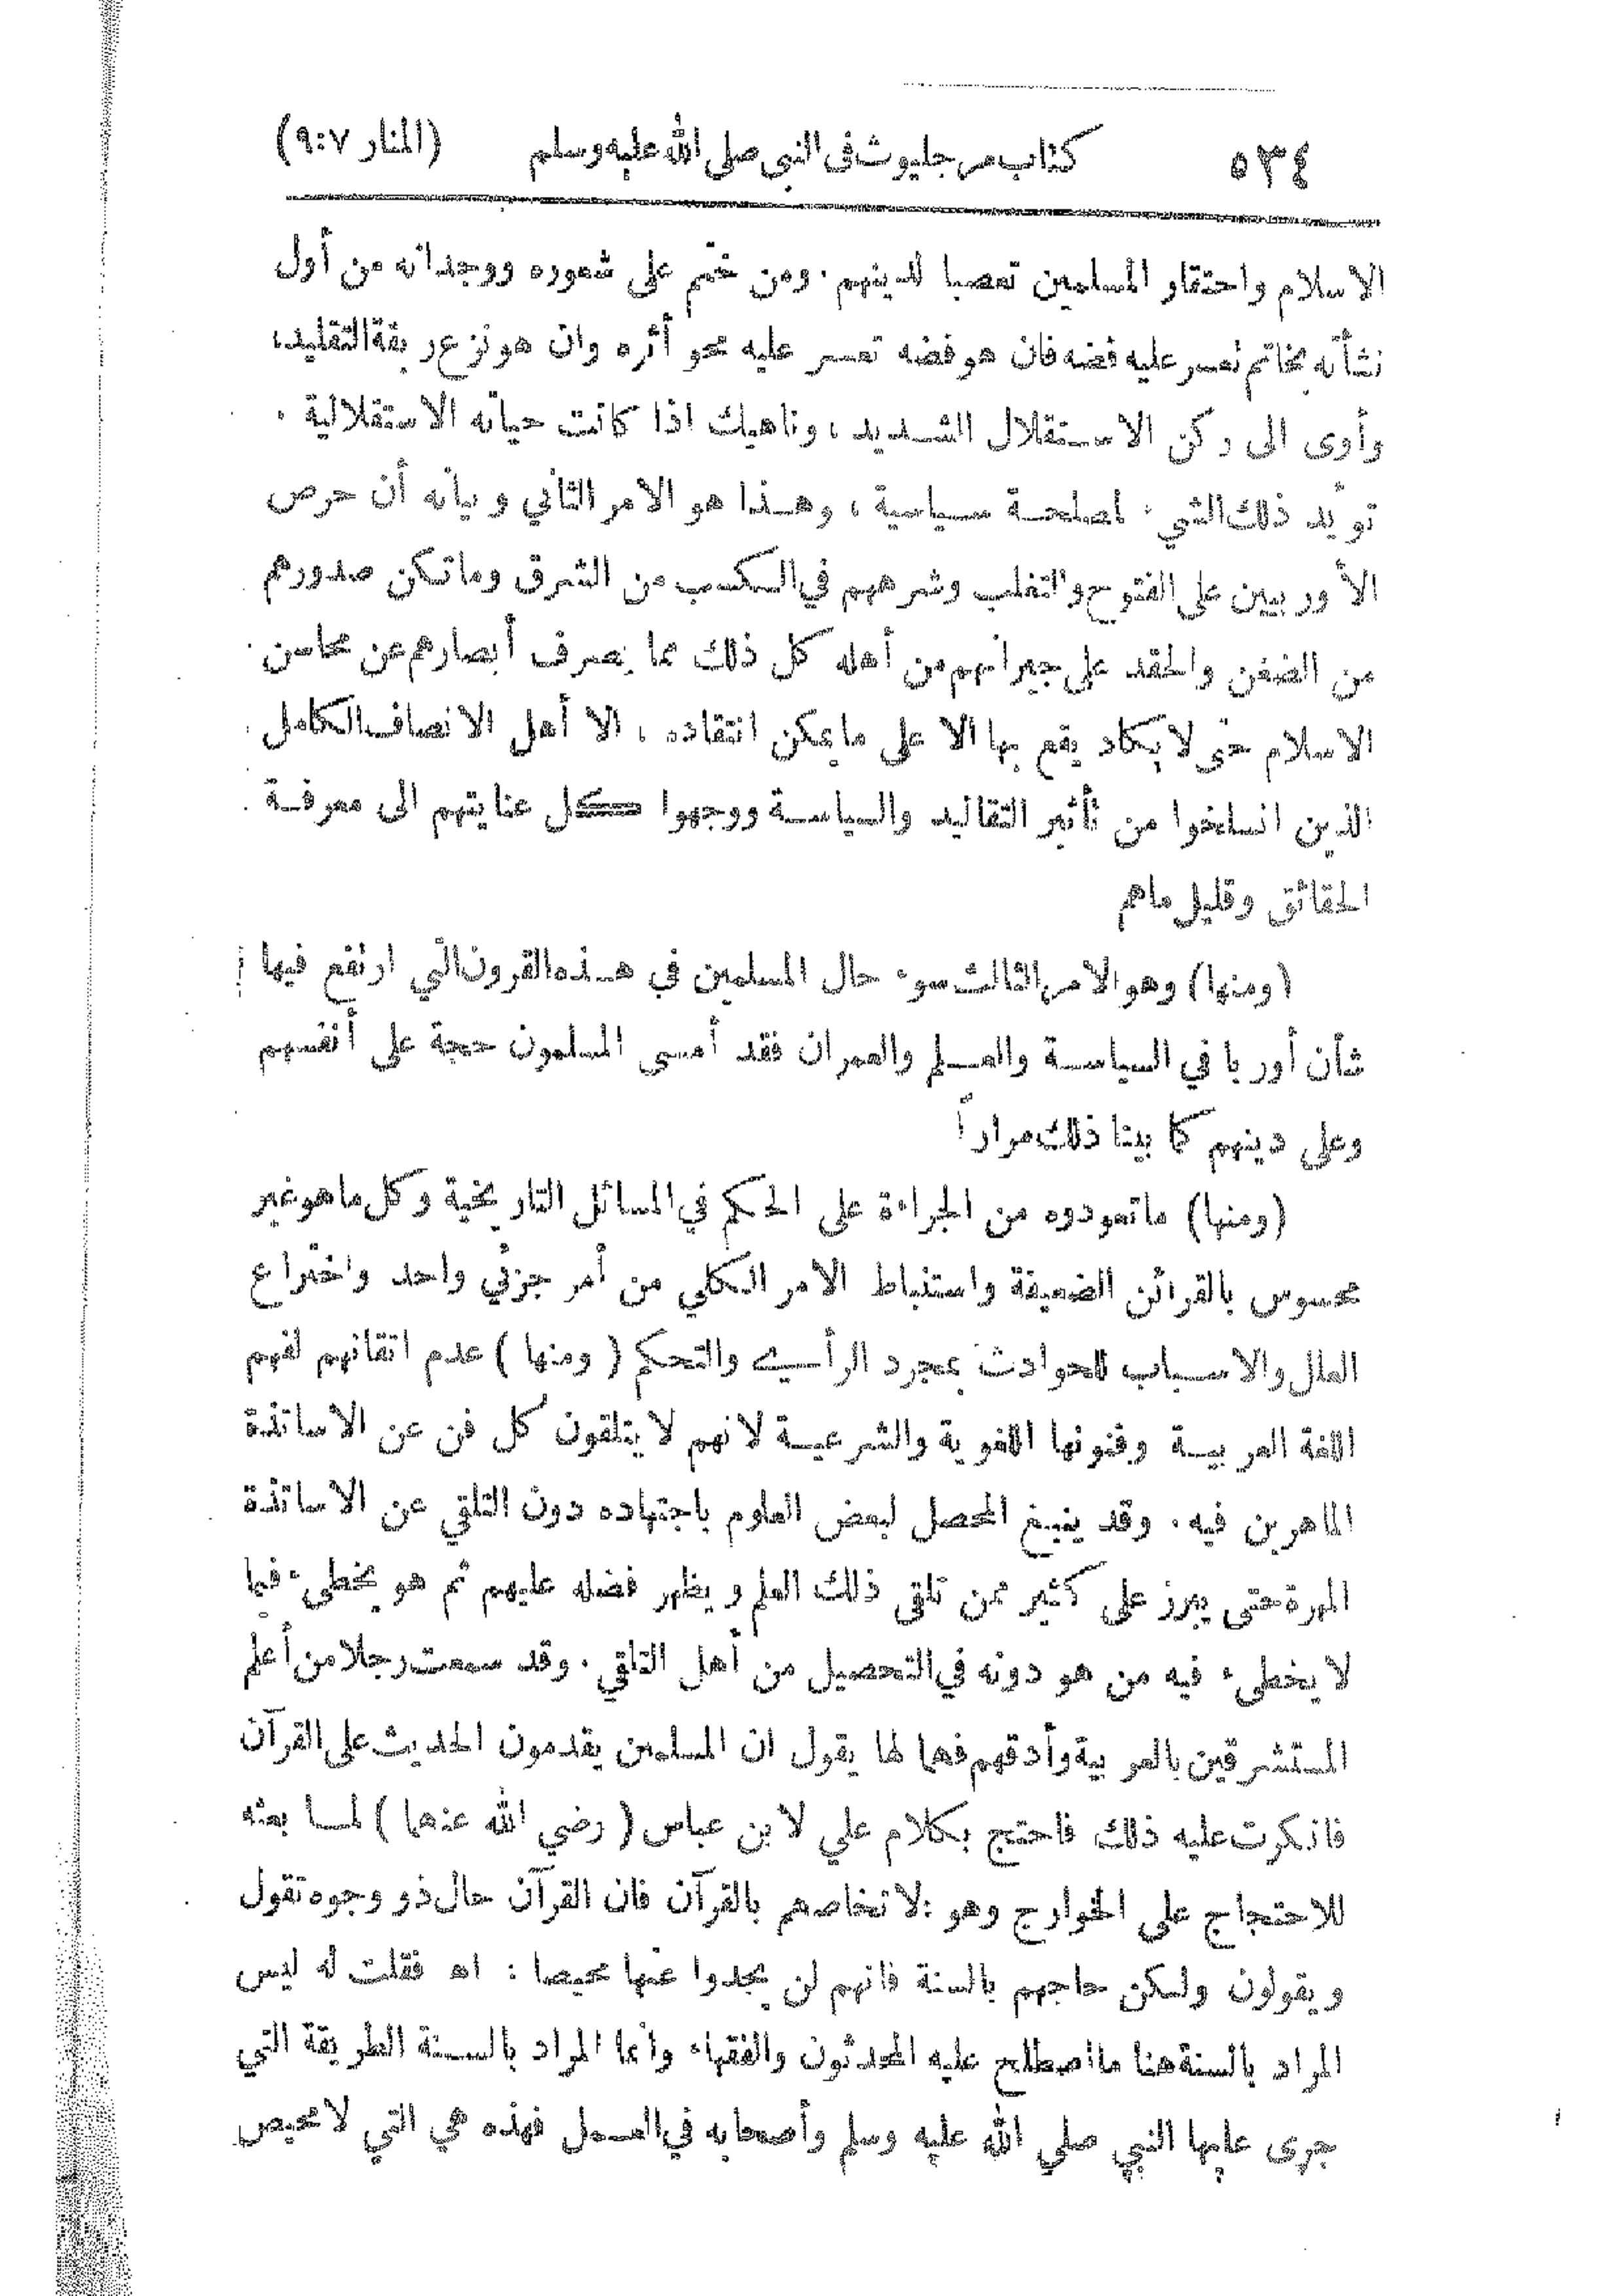 ٥٣٤ كتاب مرجليوث في النبي صلى الله عليه وسلم (المنار ٩:٧)
الاسلام واحتقار المسلمين تعصبا لدينهم . ومن ختم على شعوره ووجدانه من أول
نشأته بخاتم تعسر عليه فضه فان هو فضه تعسر عليه محو أثره وان هو نزع ربقة التقليد،
وأوى الى ركن الاستقلال الشديد، وناهيك اذا كانت حياته الاستقلالية
تؤيد ذلك الشيء لمصلحة سياسية، وهذا هو الامر الثاني وبيانه أن حرص
الأوربيين على الفتوح والتغلب وشرههم في الكسب من الشرق وما تكن صدورهم
من الضغن والحقد على جيرانهم من أهله كل ذلك مما يصرف أبصارهم عن محاسن
الاسلام حتى لا يكاد يقع بها الا على ما يمكن انتقاده، الا أهل الانصاف الكامل
الذين انسلخوا من تأثير التقاليد والسياسة ووجهوا كل عنايتهم الى معرفة
الحقائق وقليل ماهم
(ومنها) وهو الامر الثالث سوء حال المسلمين في هذه القرون التي ارتفع فيها
شأن أوربا في السياسة والعلم والعمران فقد أمسى المسلمون حجة على أنفسهم
وعلى دينهم كما بينا ذلك مراراً
(ومنها) ما تعودوه من الجراءة على الحكم في المسائل التاريخية وكل ما هو غير
محسوس بالقرائن الضعيفة واستنباط الامر الكلي من أمر جزئي واحد واختراع
العلل والاسباب للحوادث بمجرد الرأي والتحكم (ومنها) عدم اتقانهم لفهم
اللغة العربية وفنونها اللغوية والشرعية لانهم لا يتلقون كل فن عن الاساتذة
الماهرين فيه. وقد ينبغ المحصل لبعض العلوم باجتهاده دون التلقي عن الاساتذة
المهرة حتى يبرز على كثير ممن تلقى ذلك العلم ويظهر فضله عليهم ثم هو يخطىء فيما
لا يخطىء فيه من هو دونه في التحصيل من أهل التلقي. وقد سمعت رجلا من أعلم
المستشرقين بالعربية وأدقهم فهما لها يقول ان المسلمين يقدمون الحديث على القرآن
فانكرت عليه ذلك فاحتج بكلام علي لابن عباس (رضي الله عنهما) لما بعثه
للاحتجاج على الخوارج وهو : لا تخاصمهم بالقرآن فان القرآن حمال ذو وجوه تقول
ويقولون ولكن حاججهم بالسنة فانهم لن يجدوا عنها محيصا : اه فقلت له ليس
المراد بالسنة هنا ما اصطلح عليه المحدثون والفقهاء وانما المراد بالسنة الطريقة التي
جرى عليها النبي صلى الله عليه وسلم وأصحابه في العمل فهذه هي التي لا محيص